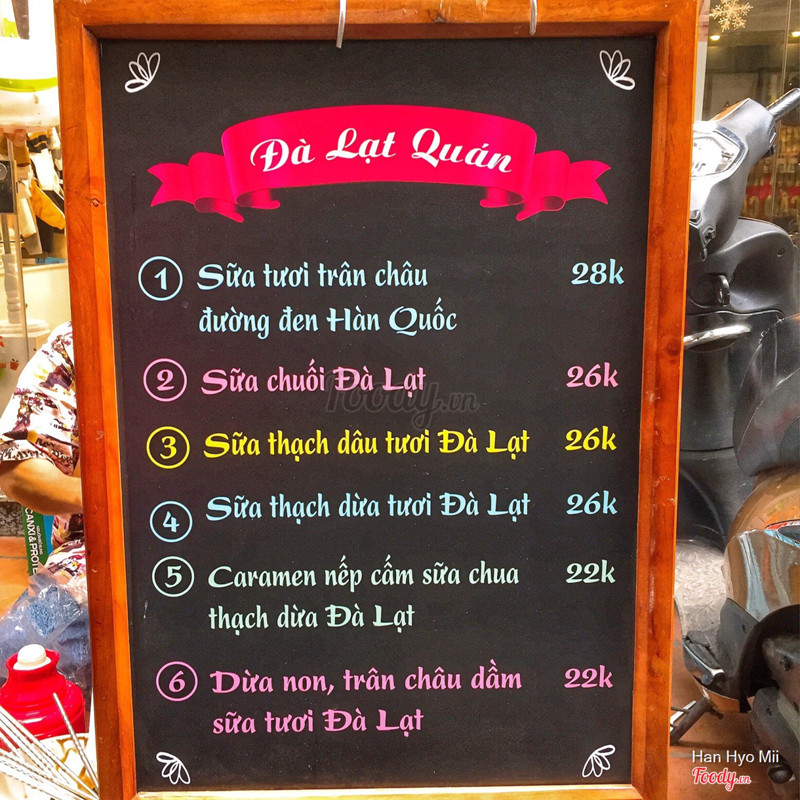 Đà Lạt Quán
1 Sữa tươi trân châu 28k
đường đen Hàn Quốc
2 Sữa chuối Đà Lạt 26k
Foody.vn
3 Sữa thạch dâu tươi Đà Lạt 26k
4 Sữa thạch dừa tươi Đà Lạt 26k
5 Caramen nếp cẩm sữa chua 22k
thạch dừa Đà Lạt
6 Dừa non, trân châu dầm 22k
sữa tươi Đà Lạt
CANXI & PROTE
Han Hyo Mii
Foody.vn